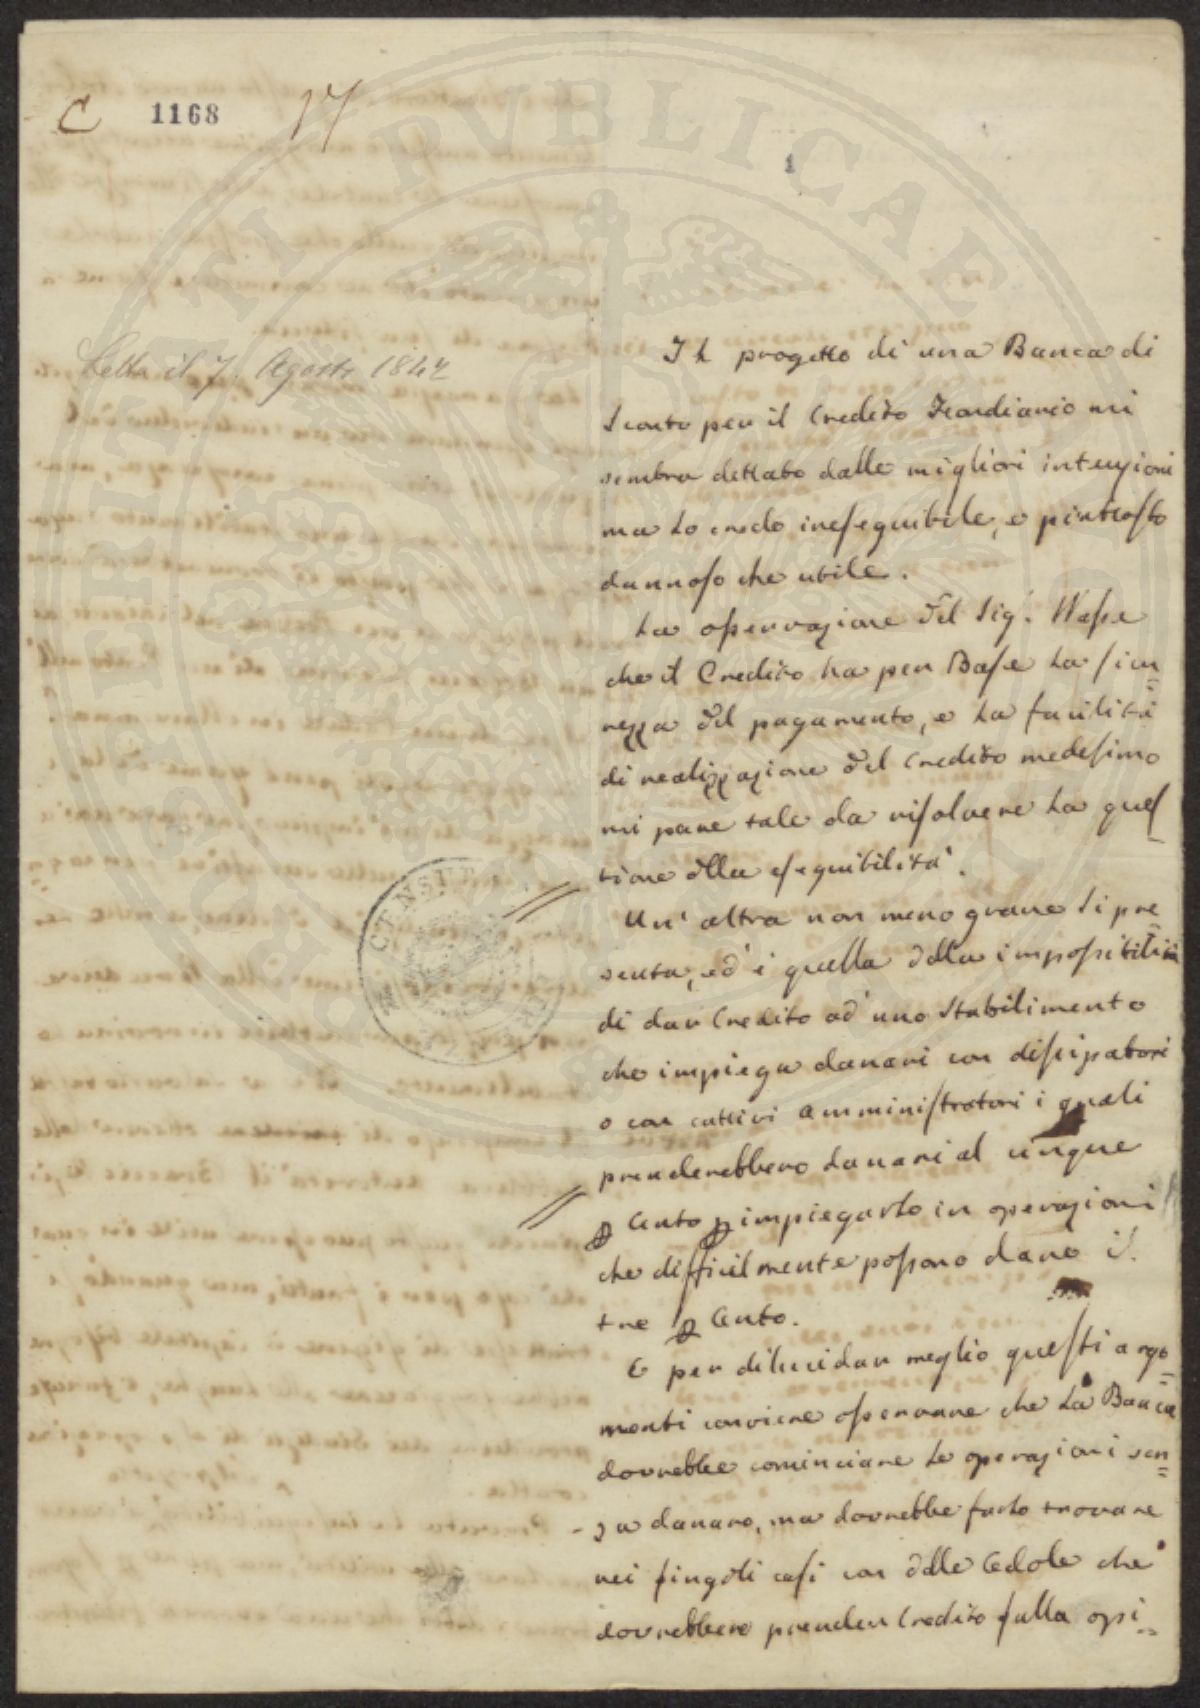 C 1168 17
1
Letta il 7. Agosto 1842
Il progetto di una Banca di
Sconto per il Credito Fondiario mi
sembra dettato dalle migliori intenzioni
ma lo credo ineseguibile, e piuttosto
dannoso che utile.
La osservazione del Sig.
che il Credito ha per Base la sicu=
rezza del pagamento, e la facilità
di realizzazione del Credito medesimo
mi pare tale da risolvere la ques
tione della eseguibilità.
Un' altra non meno grave si pre
senta, ed è quella della impossibilità
di dar Credito ad uno Stabilimento
che impiega danari con dissipatori
o con cattivi amministratori i quali
prenderebbero danari al cinque
p Cento p impiegarlo in operazioni
che difficilmente possono dare il
tre p Cento.
E per dilucidar meglio questi argo=
menti conviene osservare che la Banca
dovrebbe cominciare le operazioni sen=
za danaro, ma dovrebbe farlo trovare
nei singoli casi con delle Cedole che
dovrebbero prender Credito sulla opi=